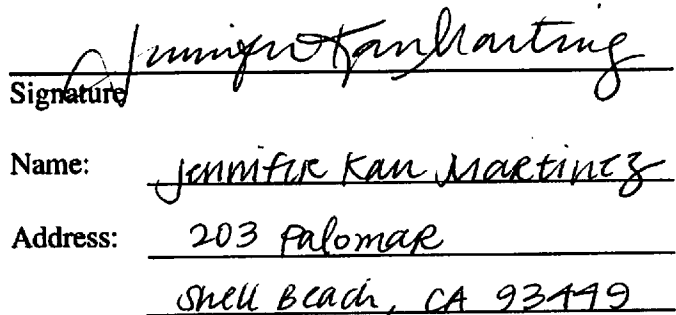 Jennifer Kan Martinez
Signature
Name: Jennifer Kan Martinez
Address: 203 Palomar
Shell Beach, CA 93449